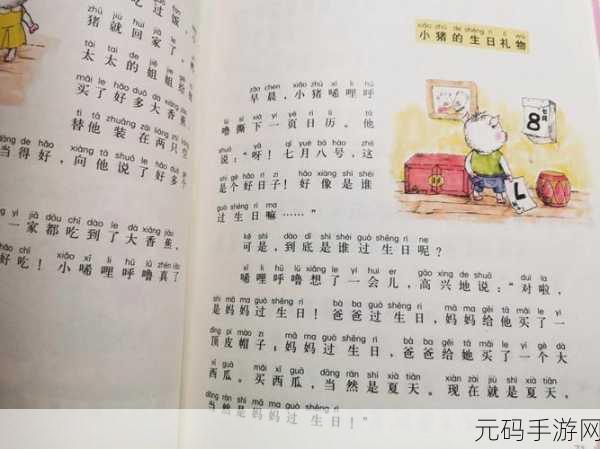 chī guò fàn
吃 过 饭，
zhū jiù huí jiā le
猪 就 回 家 了。
tài tai de jiě jie gěi
太 太 的 姐 姐 给
mǎi le hǎo duō dà xiāng
买 了 好 多 大 香
tì tā zhuāng zài liǎng zhī
替 他 装 在 两 只
dāng de hǎo xiàng tā shuō le hǎo duō
当 得 好，向 他 说 了 好 多
yì jiā dōu chī dào le dà xiāng jiāo
一 家 都 吃 到 了 大 香 蕉，
hǎo chī xiǎo xī lī hū lū zhēn
好 吃！小 唏 哩 呼 噜 真 了
xiǎo zhū de shēng rì lǐ wù
小猪的生日礼物
zǎo chen xiǎo zhū xī lī hū
早 晨，小 猪 唏 哩 呼
lū sī xià yí yè rì lì tā
噜 撕 下 一 页 日 历。他
shuō yā qī yuè bā hào zhè
说：“呀！七 月 八 号，这
shì gè hǎo rì zi hǎo xiàng shì shéi
是 个 好 日 子！好 像 是 谁
guò shēng rì ma
过 生 日 嘛……”
kě shì dào dǐ shì shéi guò shēng rì ne
可 是，到 底 是 谁 过 生 日 呢？
xī lī hū lū xiǎng le yí huìr gāo xìng de shuō duì la
唏 哩 呼 噜 想 了 一 会 儿，高 兴 地 说：“对 啦，
shì mā ma guò shēng rì bà ba guò shēng rì mā ma gěi tā mǎi le yì
是 妈 妈 过 生 日！爸 爸 过 生 日，妈 妈 给 他 买 了 一
dǐng pí mào zi mā ma guò shēng rì bà ba gěi tā mǎi le yí gè dà
顶 皮 帽 子；妈 妈 过 生 日，爸 爸 给 她 买 了 一 个 大
xī guā mǎi xī guā dāng rán shì xià tiān xiàn zài jiù shì xià tiān
西 瓜。买 西 瓜，当 然 是 夏 天。现 在 就 是 夏 天，
dāng rán shì mā ma guò shēng rì
当 然 是 妈 妈 过 生 日！”
8
元码手游网